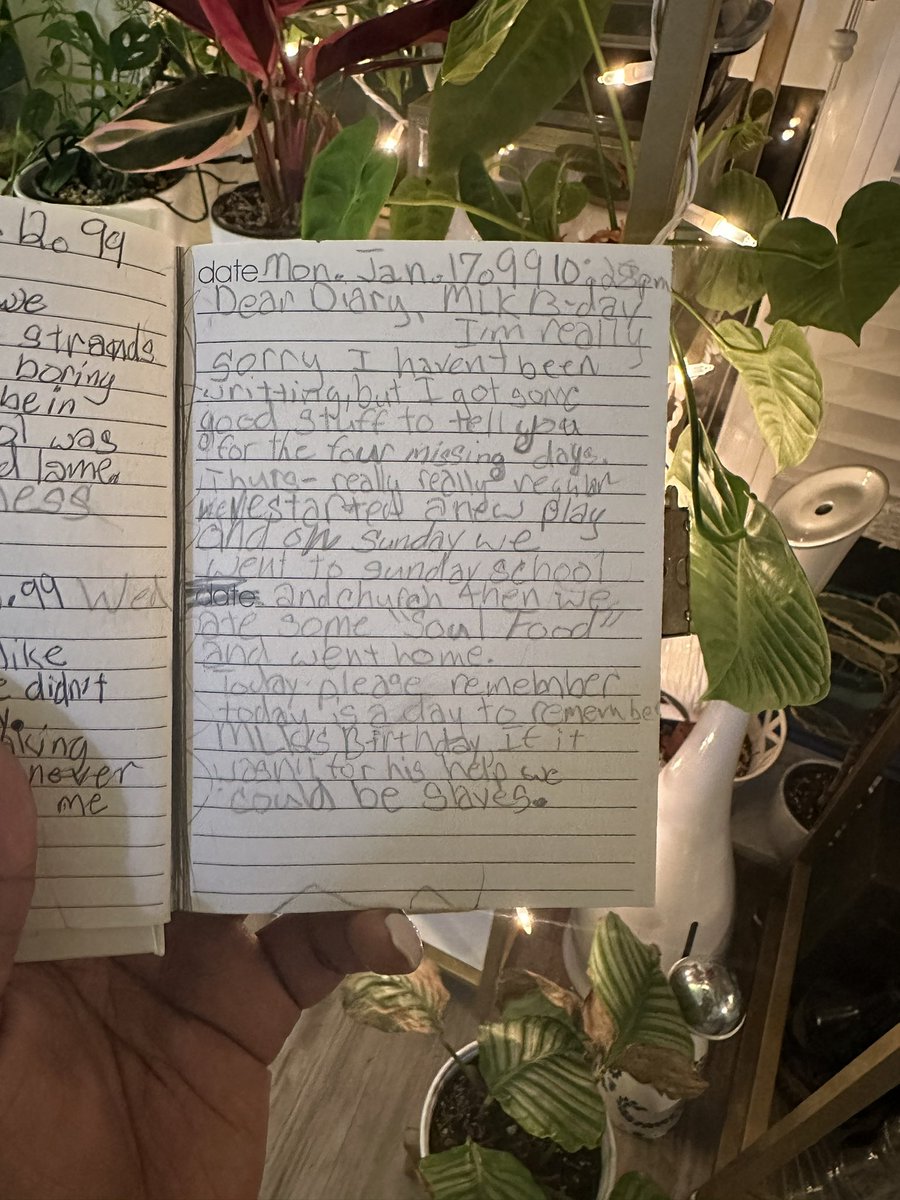 . 12. 99
we
strands
boring
be in
ol was
d lame.
ness
.99 Wed
like
e didn't
y.
hiking
never
me
date Mon. Jan. 17. 99 10: pm
Dear Diary, MLK B-day
I'm really
sorry I haven't been
writting, but I got some
good stuff to tell you
for the four missing days.
Thurs- really really regular
we started a new play
and on sunday we
went to sunday school
date and church then we
ate some "Soul Food"
and went home.
Today please remember
today is a day to remember
MLKs Birthday. If it
wasn't for his help we
could be slaves.